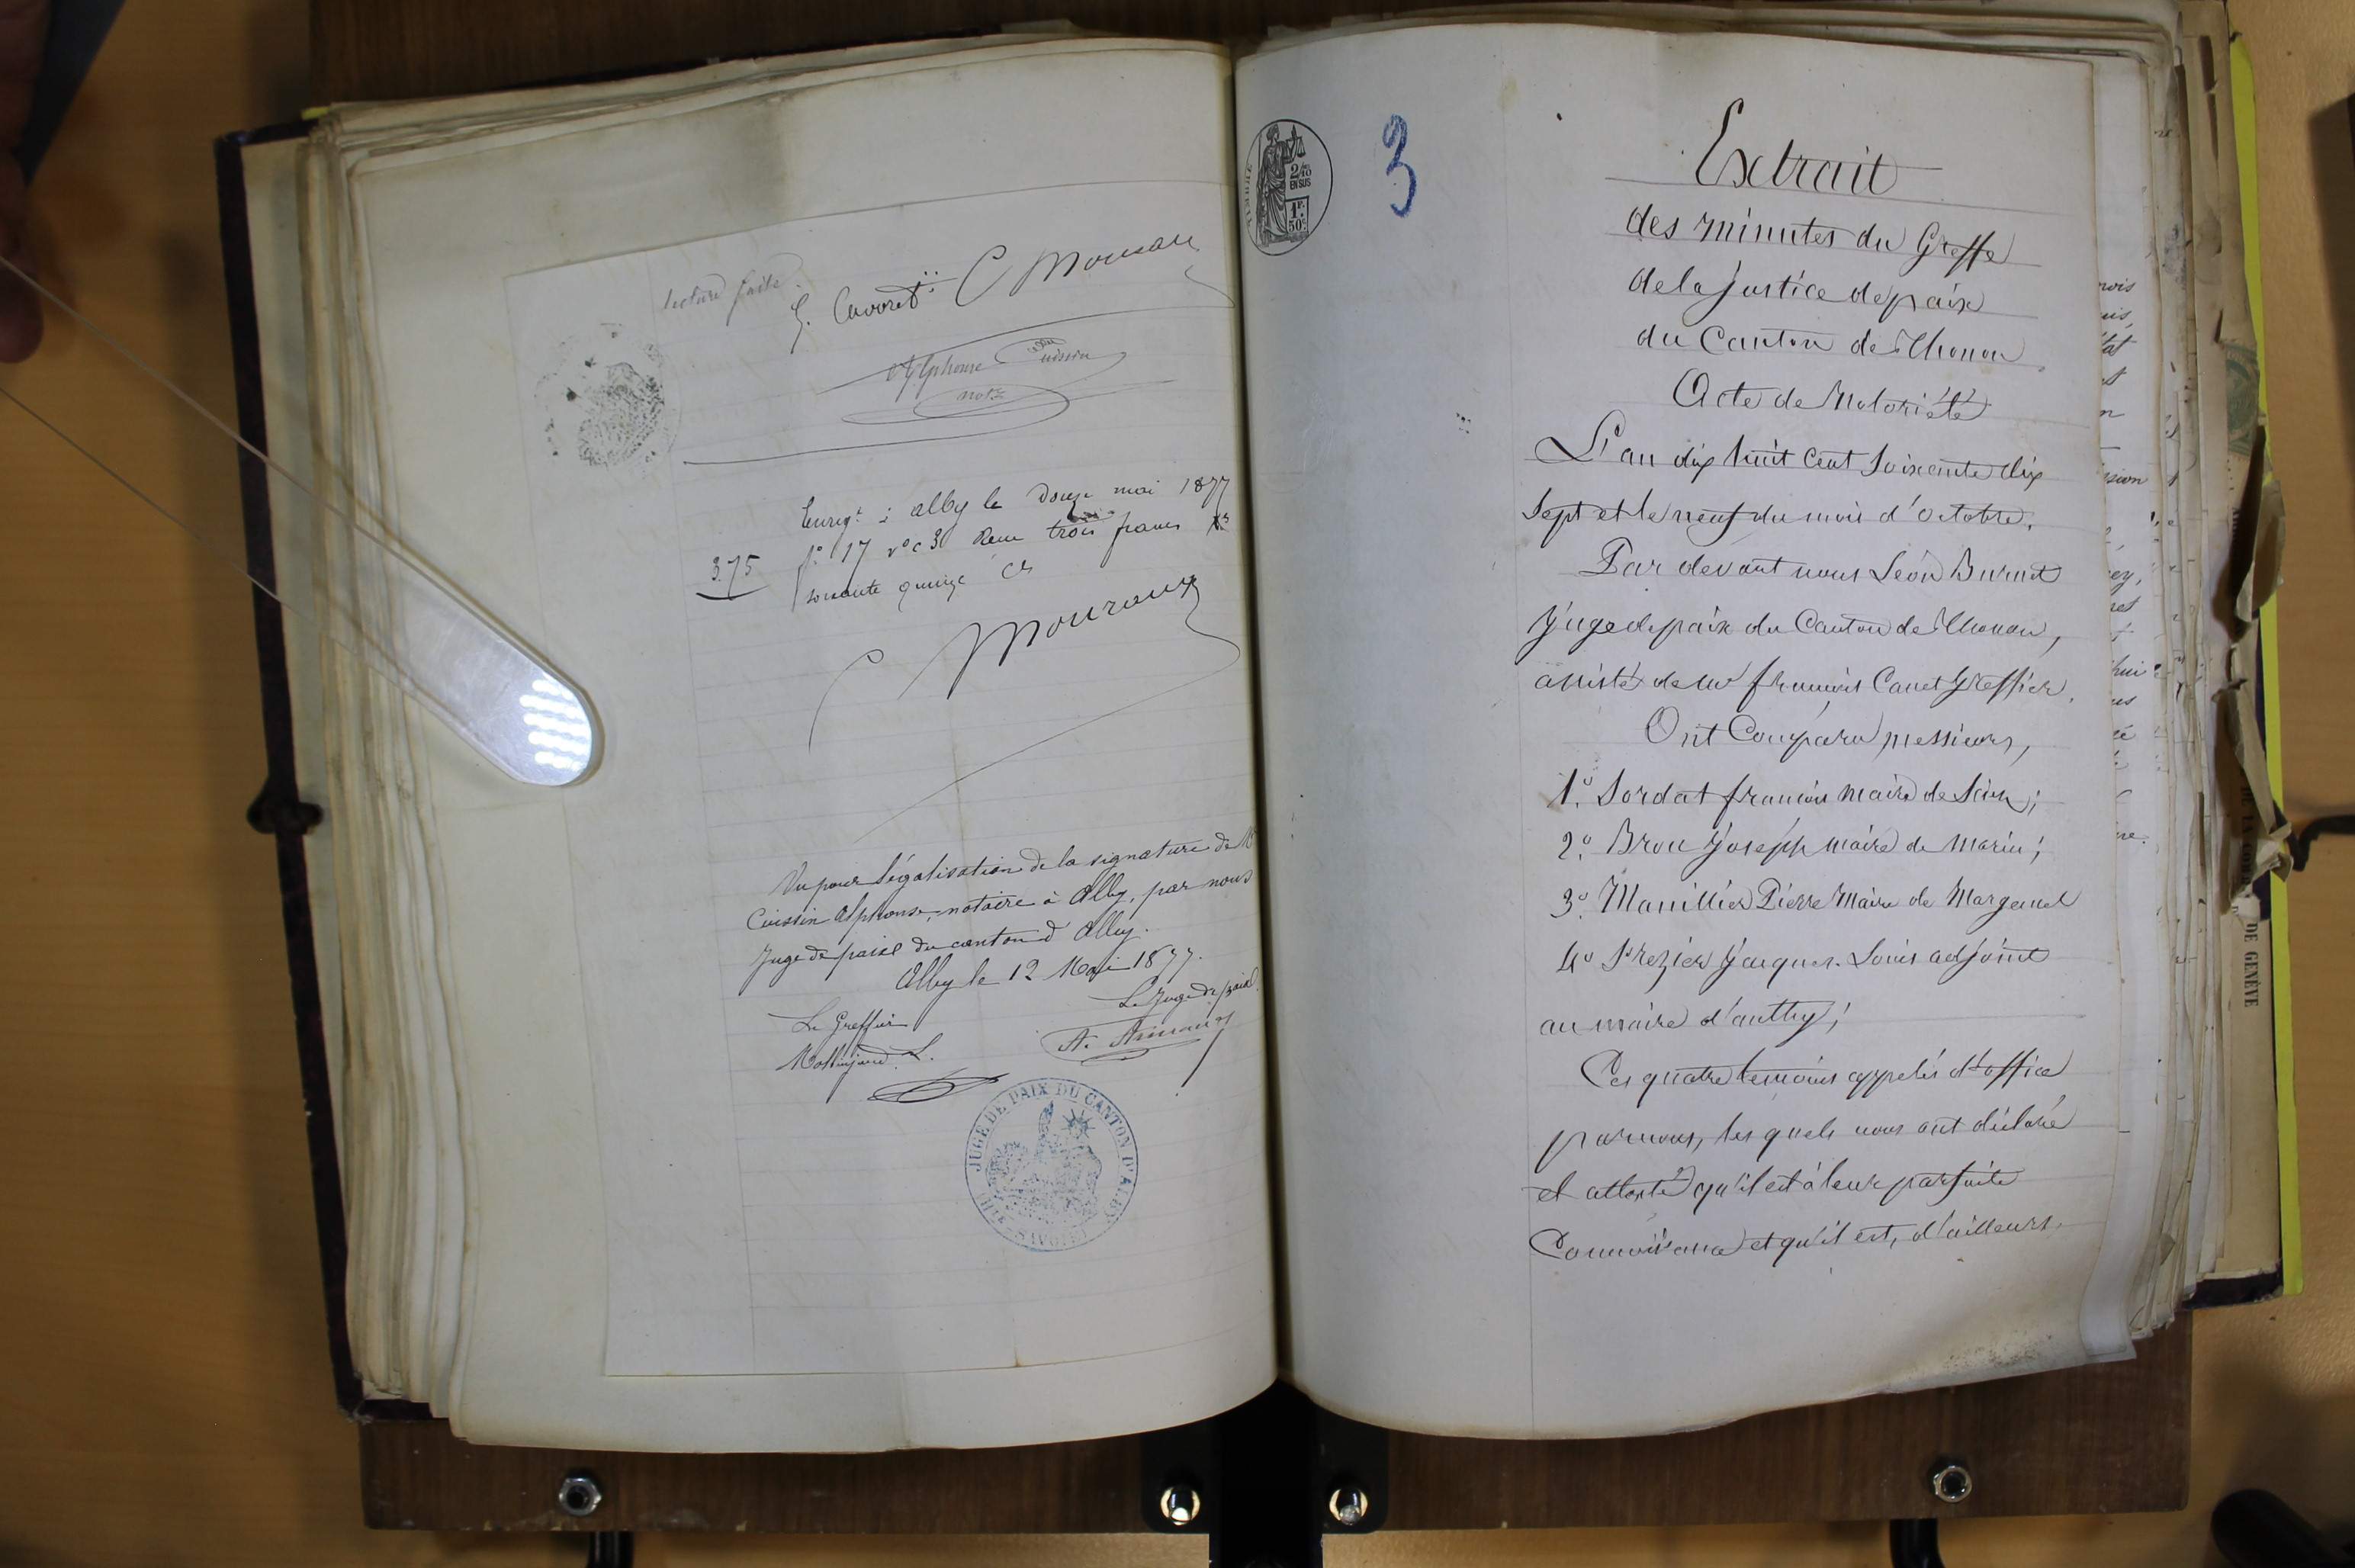 lecture faite
Enregt à alby le douze mai 1877
fo 17 vo c 3 Reçu trois francs
375
soixante quinze cs
C Mouraux
Vu pour légalisation de la signature de Me
Cuissin Alphonse, notaire à Alby, par nous
Juge de paix du canton d'Alby.
Alby le 12 Mai 1877.
Le Greffier
Le Juge de paix
JUGE DE PAIX DU CANTON D'ALBY
HTE SAVOIE
2/10
EN SUS
1F.
50c
3
Extrait
des minutes du Greffe
de la Justice de paix
du Canton de Thonon
Acte de Notoriété
L'an dix huit cent soixante dix
sept et le neuf du mois d'octobre.
Par devant nous Léon Burnet
Juge de paix du Canton de Thonon,
assisté de Mr françois Canet Greffier.
Ont Comparu messieurs,
1o. Sordat françois maire de Sciez;
2o. Brou Joseph maire de Marin;
3o. Manillier Pierre Maire de Margencel
4o Frezier Jacques-Louis adjoint
au maire d'anthy;
Ces quatre temoins appelés d'office
par nous, les quels nous ont déclaré
et attesté qu'il est à leur parfaite
Connoissance et qu'il est, d'ailleurs,
DE GENÈVE